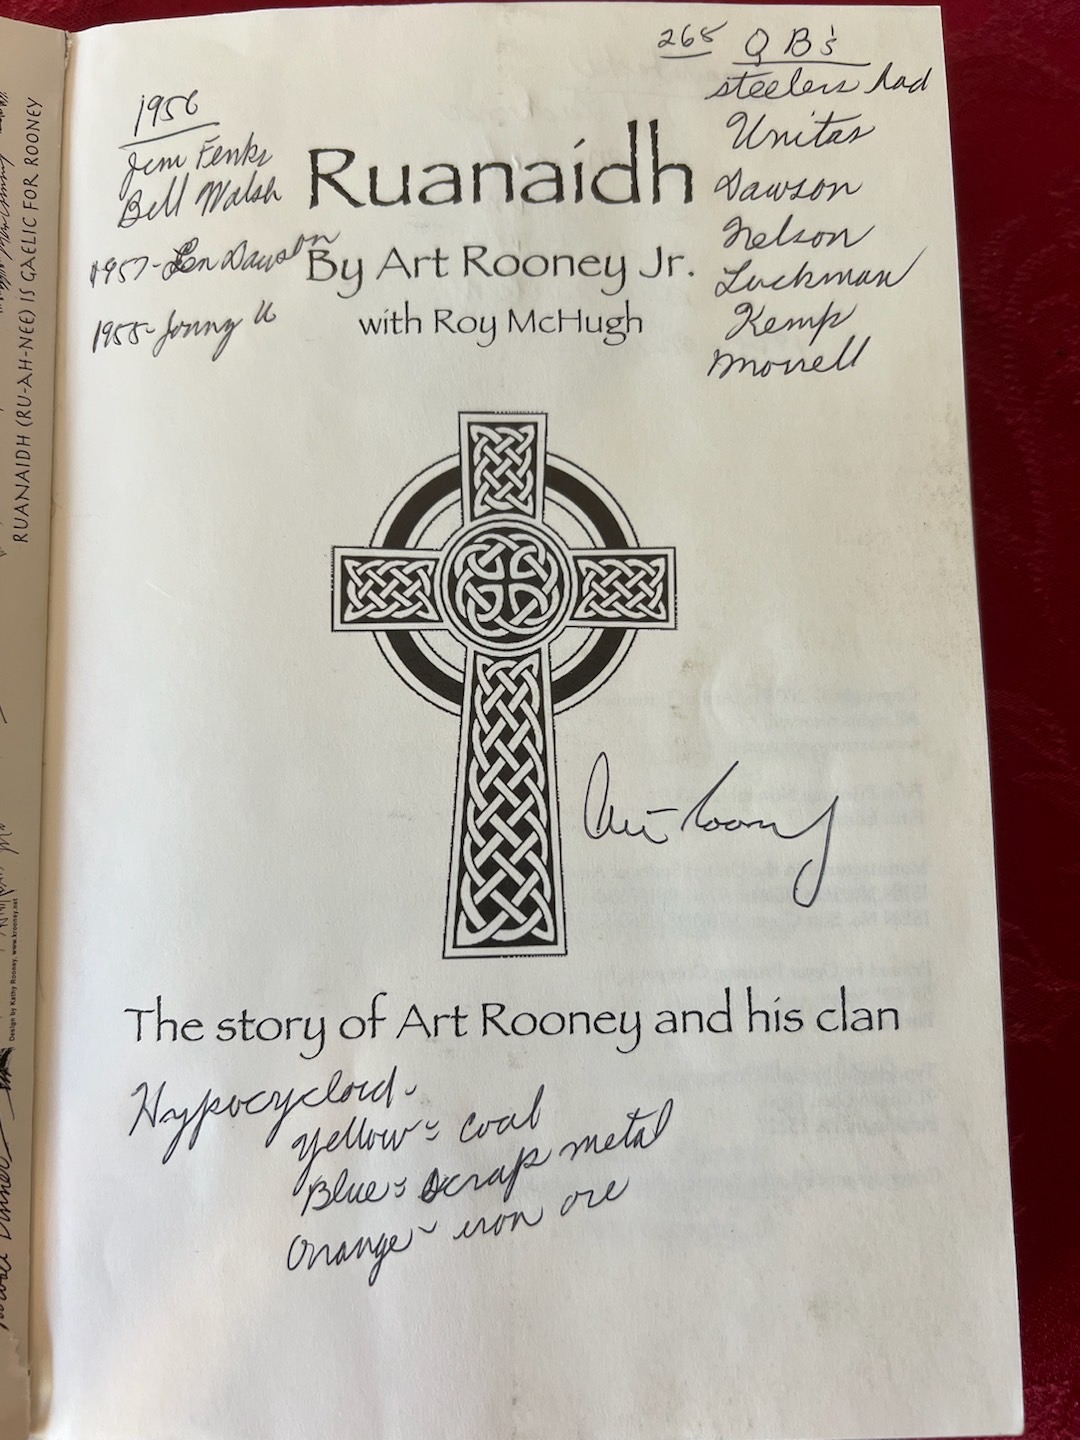 265 QB's
steelers had
Unitas
Dawson
Nelson
Luckman
Kemp
Morrell
1956
Jim Fenks
Bill Walsh
1957-Len Dawson
1955-Jonny U
Ruanaidh
By Art Rooney Jr.
with Roy McHugh
Art Rooney
The story of Art Rooney and his clan
Hypocycloid.
Yellow = coal
Blue = scrap metal
Orange - iron ore
RUANAIDH (RU-AH-NEE) IS GAELIC FOR ROONEY
Design by Kathy Rooney, www.krooney.net
Dinner